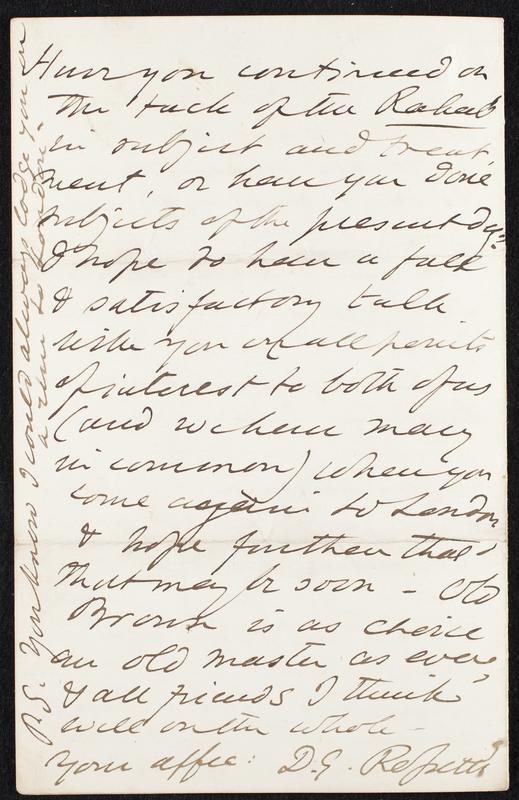 Have you continued on
the tack of the Rahab
in subject and treat-
ment, or have you done
subjects of the present day?
I hope to have a full
& satisfactory talk
with you on all points
of interest to both of us
(and we have many
in common) when you
come again to London
& hope further that
that may be soon – Old
Brown is as choice
an old master as ever,
& all friends I think
well on the whole –
Your affec: D.G. Rossetti
P.S. You know I could always lodge you on
a run to London.